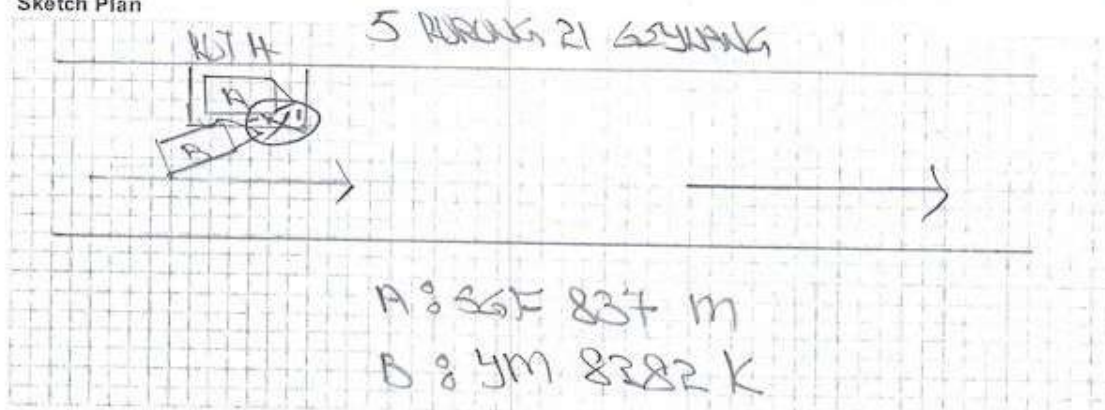 Sketch Plan
5 LORONG 21 GEYLANG
LOT 4
A
B
A : SGF 837 M
B : YM 8282 K